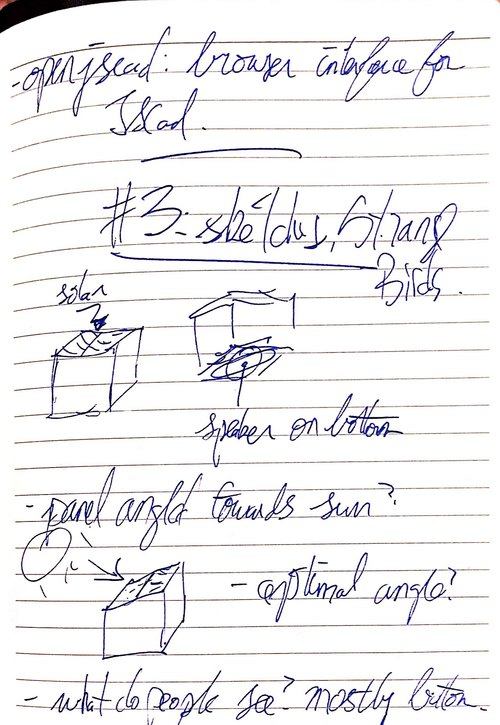 - openjscad: browser interface for
Jscad.
#3: sketches, Strang
Birds.
solar
speaker on bottom
- panel angled towards sun?
- optimal angle?
- what do people see? mostly bottom.